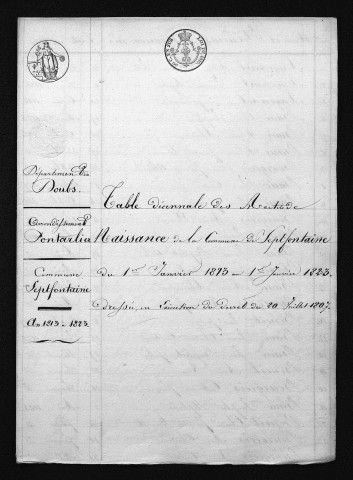 Département du
Doubs.
Arrondissement
Pontarlier
Commune
Septfontaine
An 1813 à 1823
Table décennale des Actes de
Naissance de la Commune de Septfontaine
du 1er Janvier 1813 au 1er Janvier 1823.
dressée en Exécution du Décret du 20 Juillet 1807.